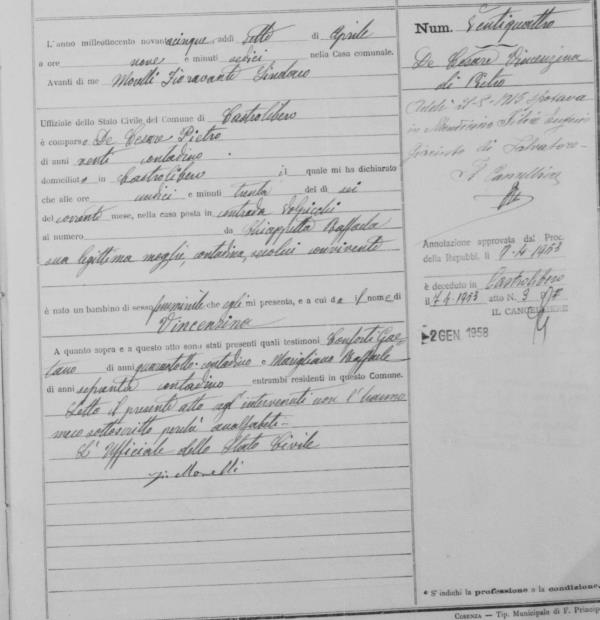 L'anno millenovecento novantacinque, addì Sette di Aprile
a ore nove e minuti sedici nella Casa comunale.
Avanti di me Morelli Fioravante Sindaco
Uffiziale dello Stato Civile del Comune di Castrolibero
è comparso De Cesare Pietro
di anni venti contadino
domiciliato in Castrolibero il quale mi ha dichiarato
che alle ore undici e minuti trenta del dì sei
del corrente mese, nella casa posta in contrada
al numero da Chiappetta Raffaela
sua legittima moglie, contadina, seco lui convivente
è nato un bambino di sesso femminile che egli mi presenta, e a cui dà l nome di
Vincenzina
A quanto sopra e a questo atto sono stati presenti quali testimoni Conforti Gae-
tano di anni quarantotto contadino e Marigliano Raffaele
di anni settanta contadino entrambi residenti in questo Comune.
Letto il presente atto agl'intervenuti non l'hanno
meco sottoscritto perchè analfabeti
L'Uffiziale dello Stato Civile
Morelli
Num. Ventiquattro
De Cesare Vincenzina
di Pietro
Addì 21-8-1915 sposava
in Mendicino
Giacinto di Salvatore
Il Cancelliere
Annotazione approvata dal Proc.
della Repubbl. il 9-4 1953
è deceduto in Castrolibero
il 7-4-1953 atto N. 3
IL CANCELLIERE
-2 GEN 1958
* S'indichi la professione o la condizione.
COSENZA — Tip. Municipale di F. Princip